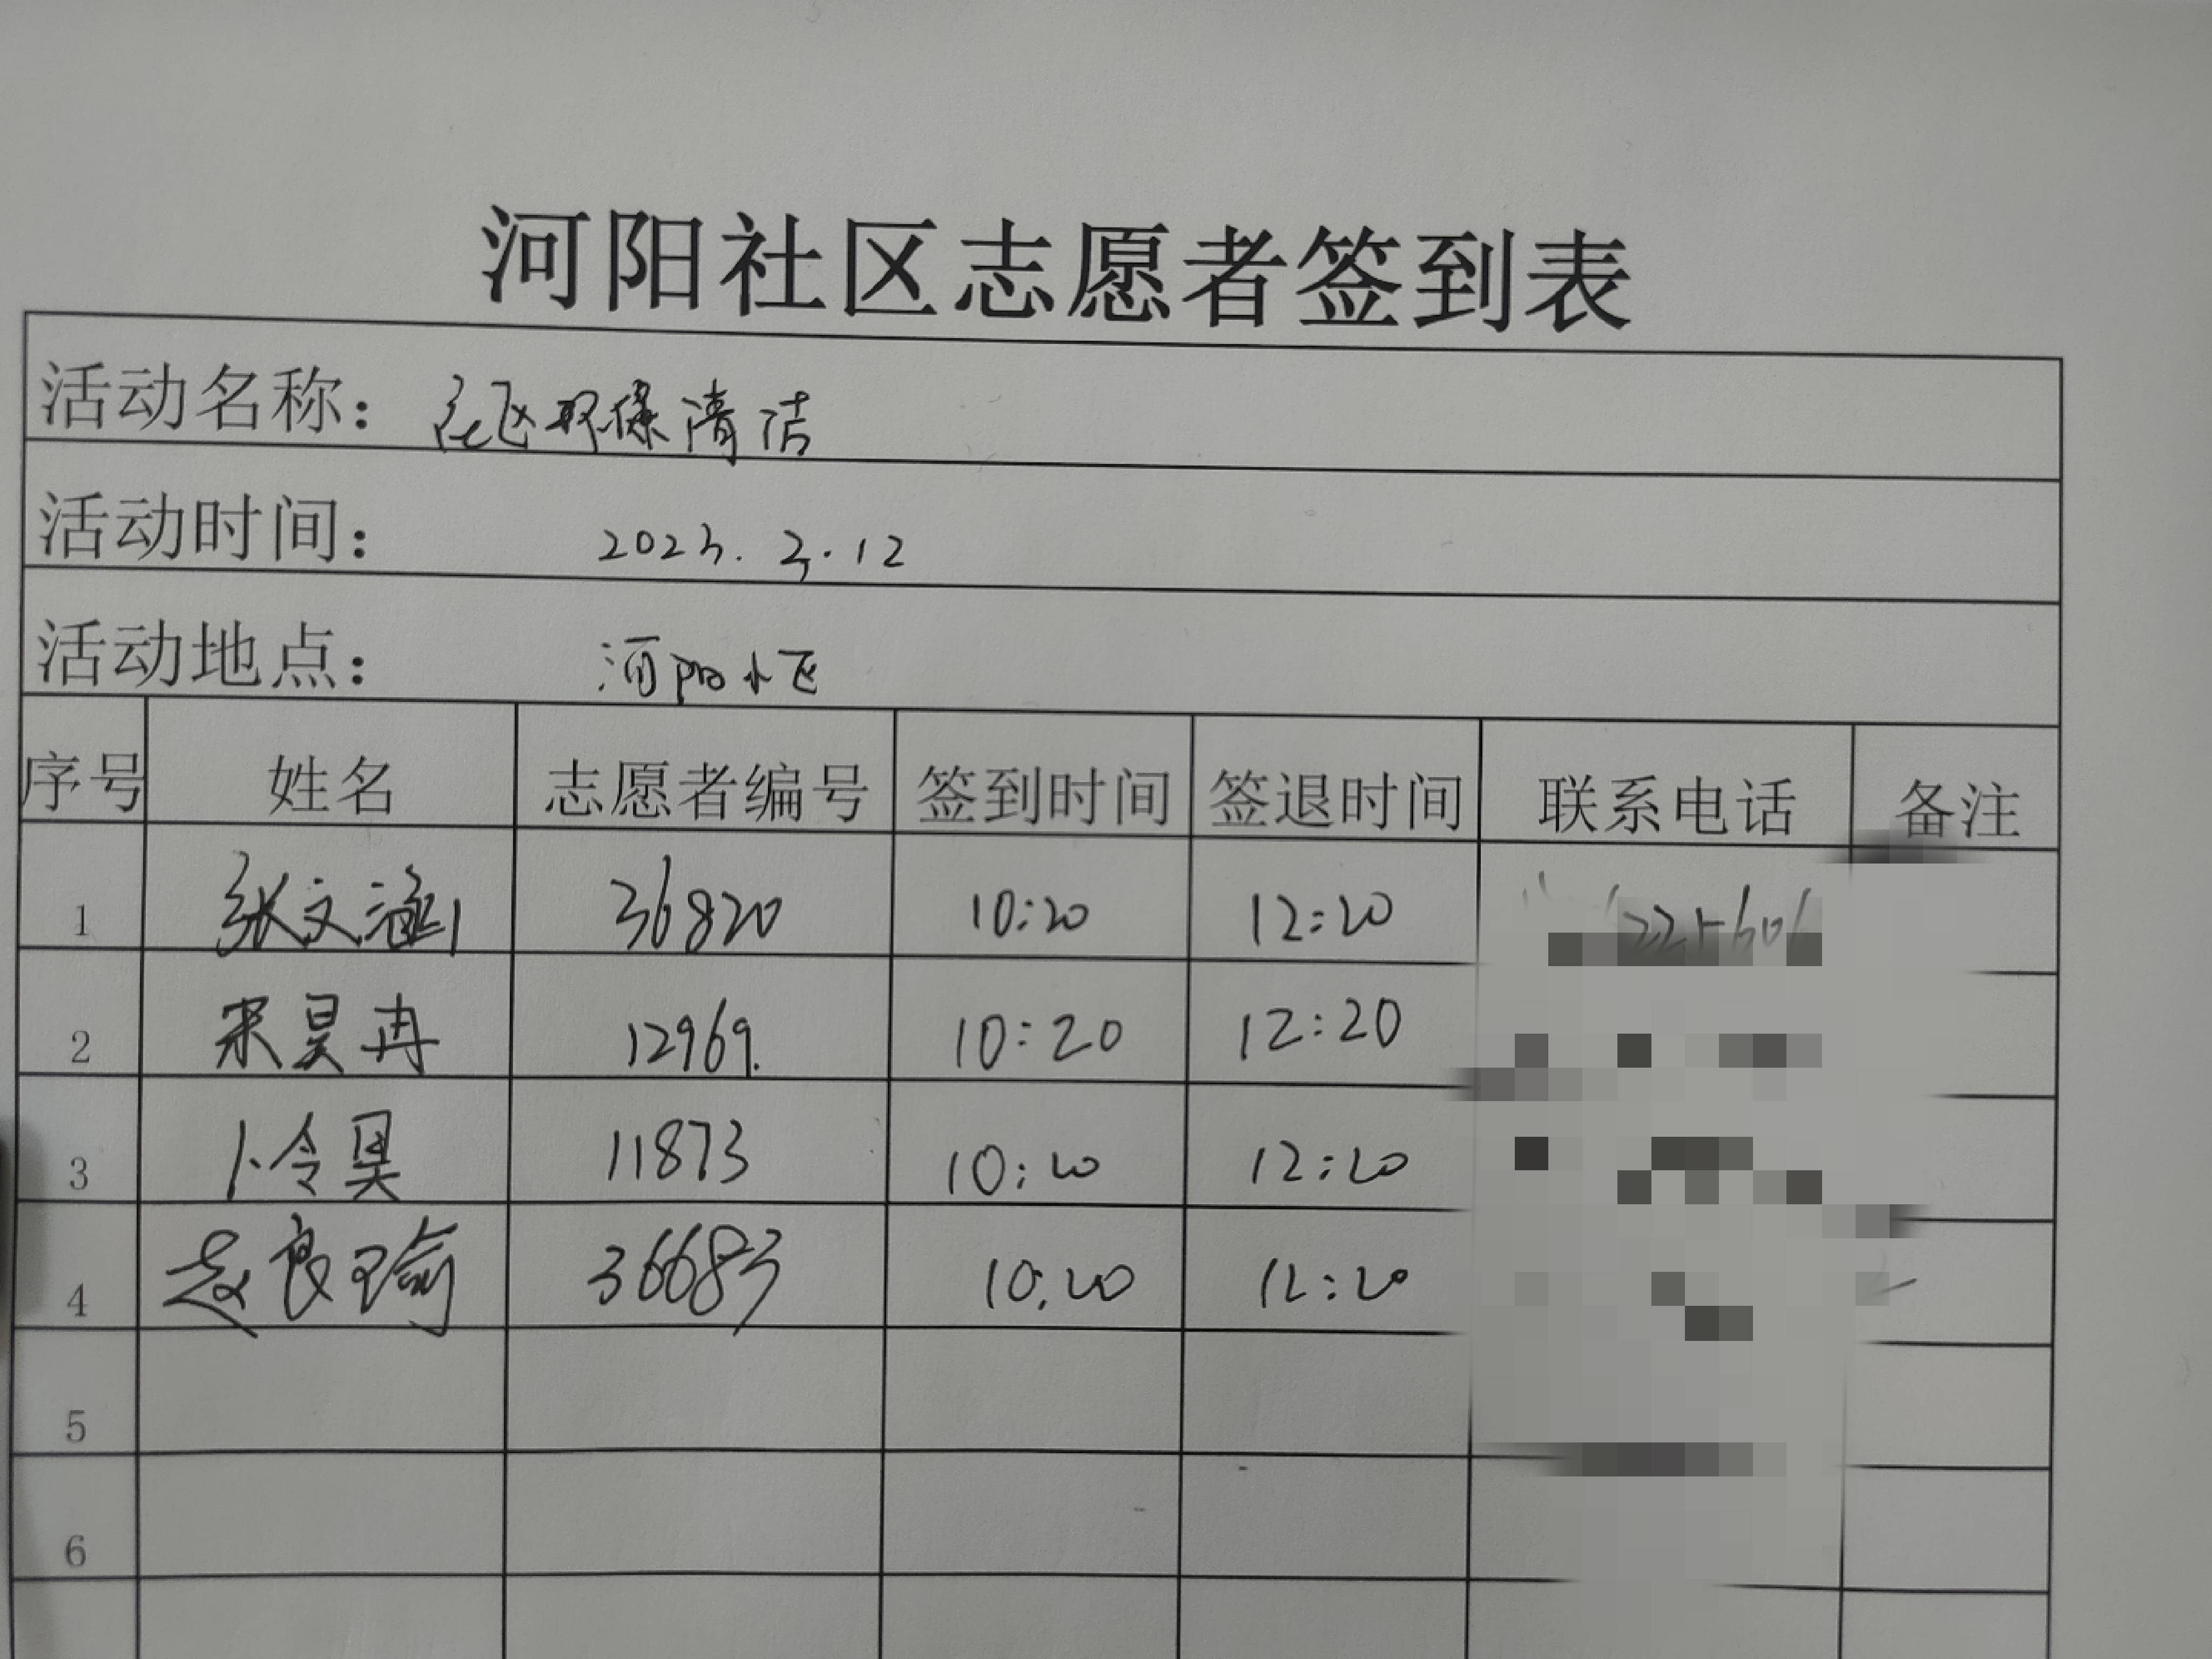 河阳社区志愿者签到表
活动名称： 清洁
活动时间： 2023. 3.12
活动地点： 河阳小区
序号 姓名 志愿者编号 签到时间 签退时间 联系电话 备注
1 张文涵 36820 10:20 12:20
2 宋昊冉 12969. 10:20 12:20
3 卜令昊 11873 10:20 12:20
4 赵良瑜 36683 10:20 12:20
5
6